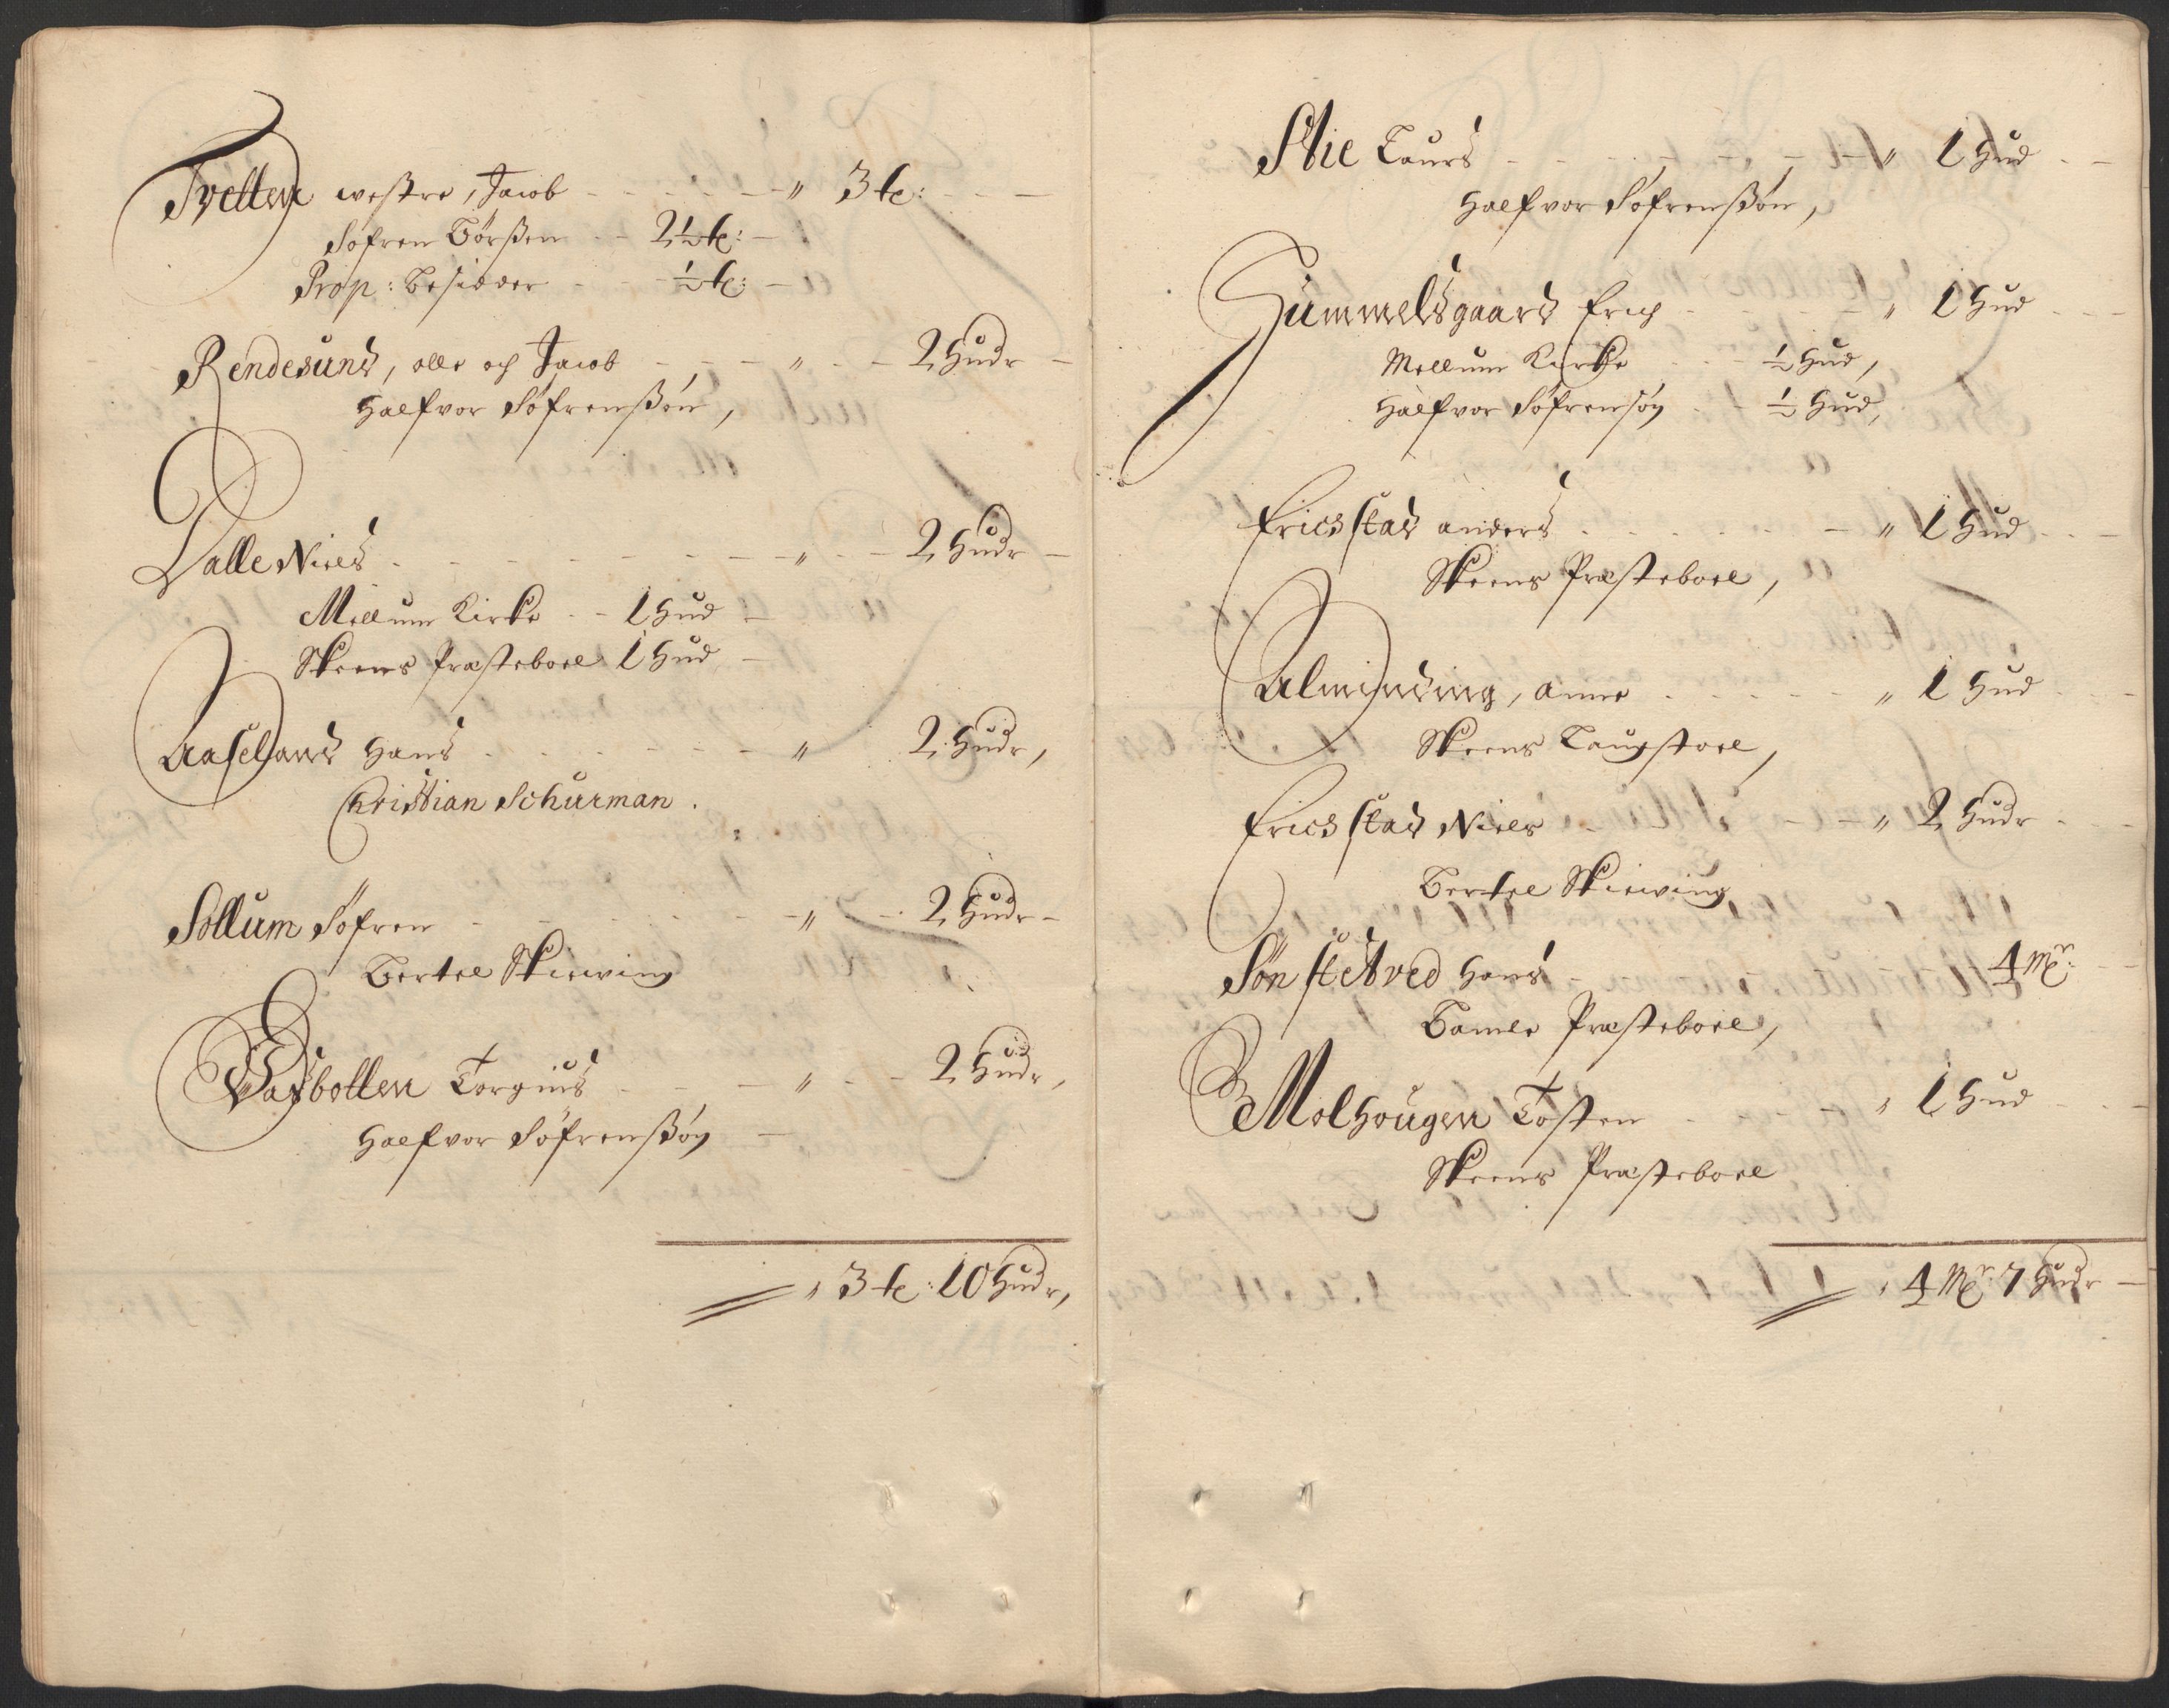 Tvetten westre, Jacob - - - - - „ 3 t: - - -
Søfren Børßen - - 2½ t: -
Prop: besidder - - - ½ t: -
Rendesund, olle och Jacob - - - „ - - 2 Hudr -
Halfvor Søfrenßøn,
Dalle Niels - - - - - - - „ - - 2 Hudr -
Mellum Kirke - - 1 Hud -
Skeens Præsteboel 1 Hud -
Aaseland Hans - - - - - - „ 2 Hudr,
Christian Schurman.
Sollum Søfren - - - - - - „ - 2 Hudr -
Bertel Skiewing
Vasbotten Torgius - - - „ - - 2 Hudr,
Halfvor Søfrenßøn -
, 3 t: 10 Hudr,
Stie Laurs - - - - - - - „ 1 Hud - -
Halfvor Søfrenßøn,
Hummelsgaard Erich - - - - „ 1 Hud - - -
Mellum Kirke - - - ½ Hud,
Halfvor Søfrensøn - - ½ Hud,
Ericsstad anders - - - - - - „ 1 Hud - - -
Skeens Præsteboel,
Alminding, anne - - - - - „ 1 Hud - -
Skeens Laugstoel,
Ericsstad Niels - - - - - „ 2 Hudr - -
Bertel Skiewing
Sønstetved Hans - 4 Mr: -
Bamle Præsteboel,
Molhougen Tosten - - - - „ 1 Hud - - -
Skeens Præsteboel
, 4 Mr: 7 Hudr -